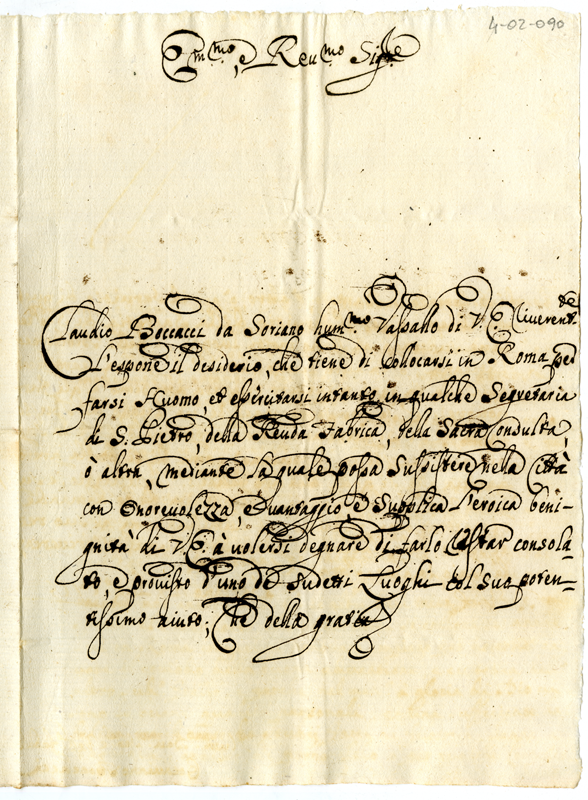 4-02-090
Em.mo, e Reu.mo Sig.re
Claudio Boccacci da Soriano hum.mo Vassallo di V. E. riverent.te
L'espone il desiderio, che tiene di collocarsi in Roma per
farsi Huomo, et esercitarsi intanto in qualche Segretaria
di S. Pietro, della Reu.da Fabrica, della Sacra Consulta,
ò altra, mediante la quale possa sussistere nella Città
con Onorevolezza, e Vantaggio e Supplica l'eroica beni-
gnità di V. E. à volersi degnare di farlo restar consola-
to, e provisto d'uno de sudetti Luoghi col suo poten-
tissimo aiuto; Che della gratia